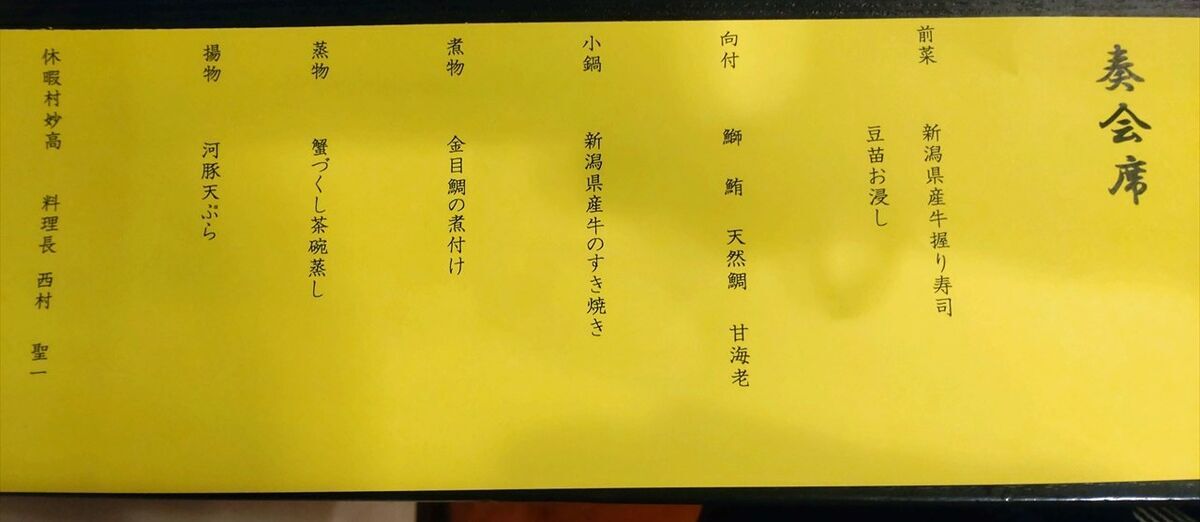 奏会席
前菜 新潟県産牛握り寿司
豆苗お浸し
向付 鰤 鮪 天然鯛 甘海老
小鍋 新潟県産牛のすき焼き
煮物 金目鯛の煮付け
蒸物 蟹づくし茶碗蒸し
揚物 河豚天ぷら
休暇村妙高 料理長 西村 聖一